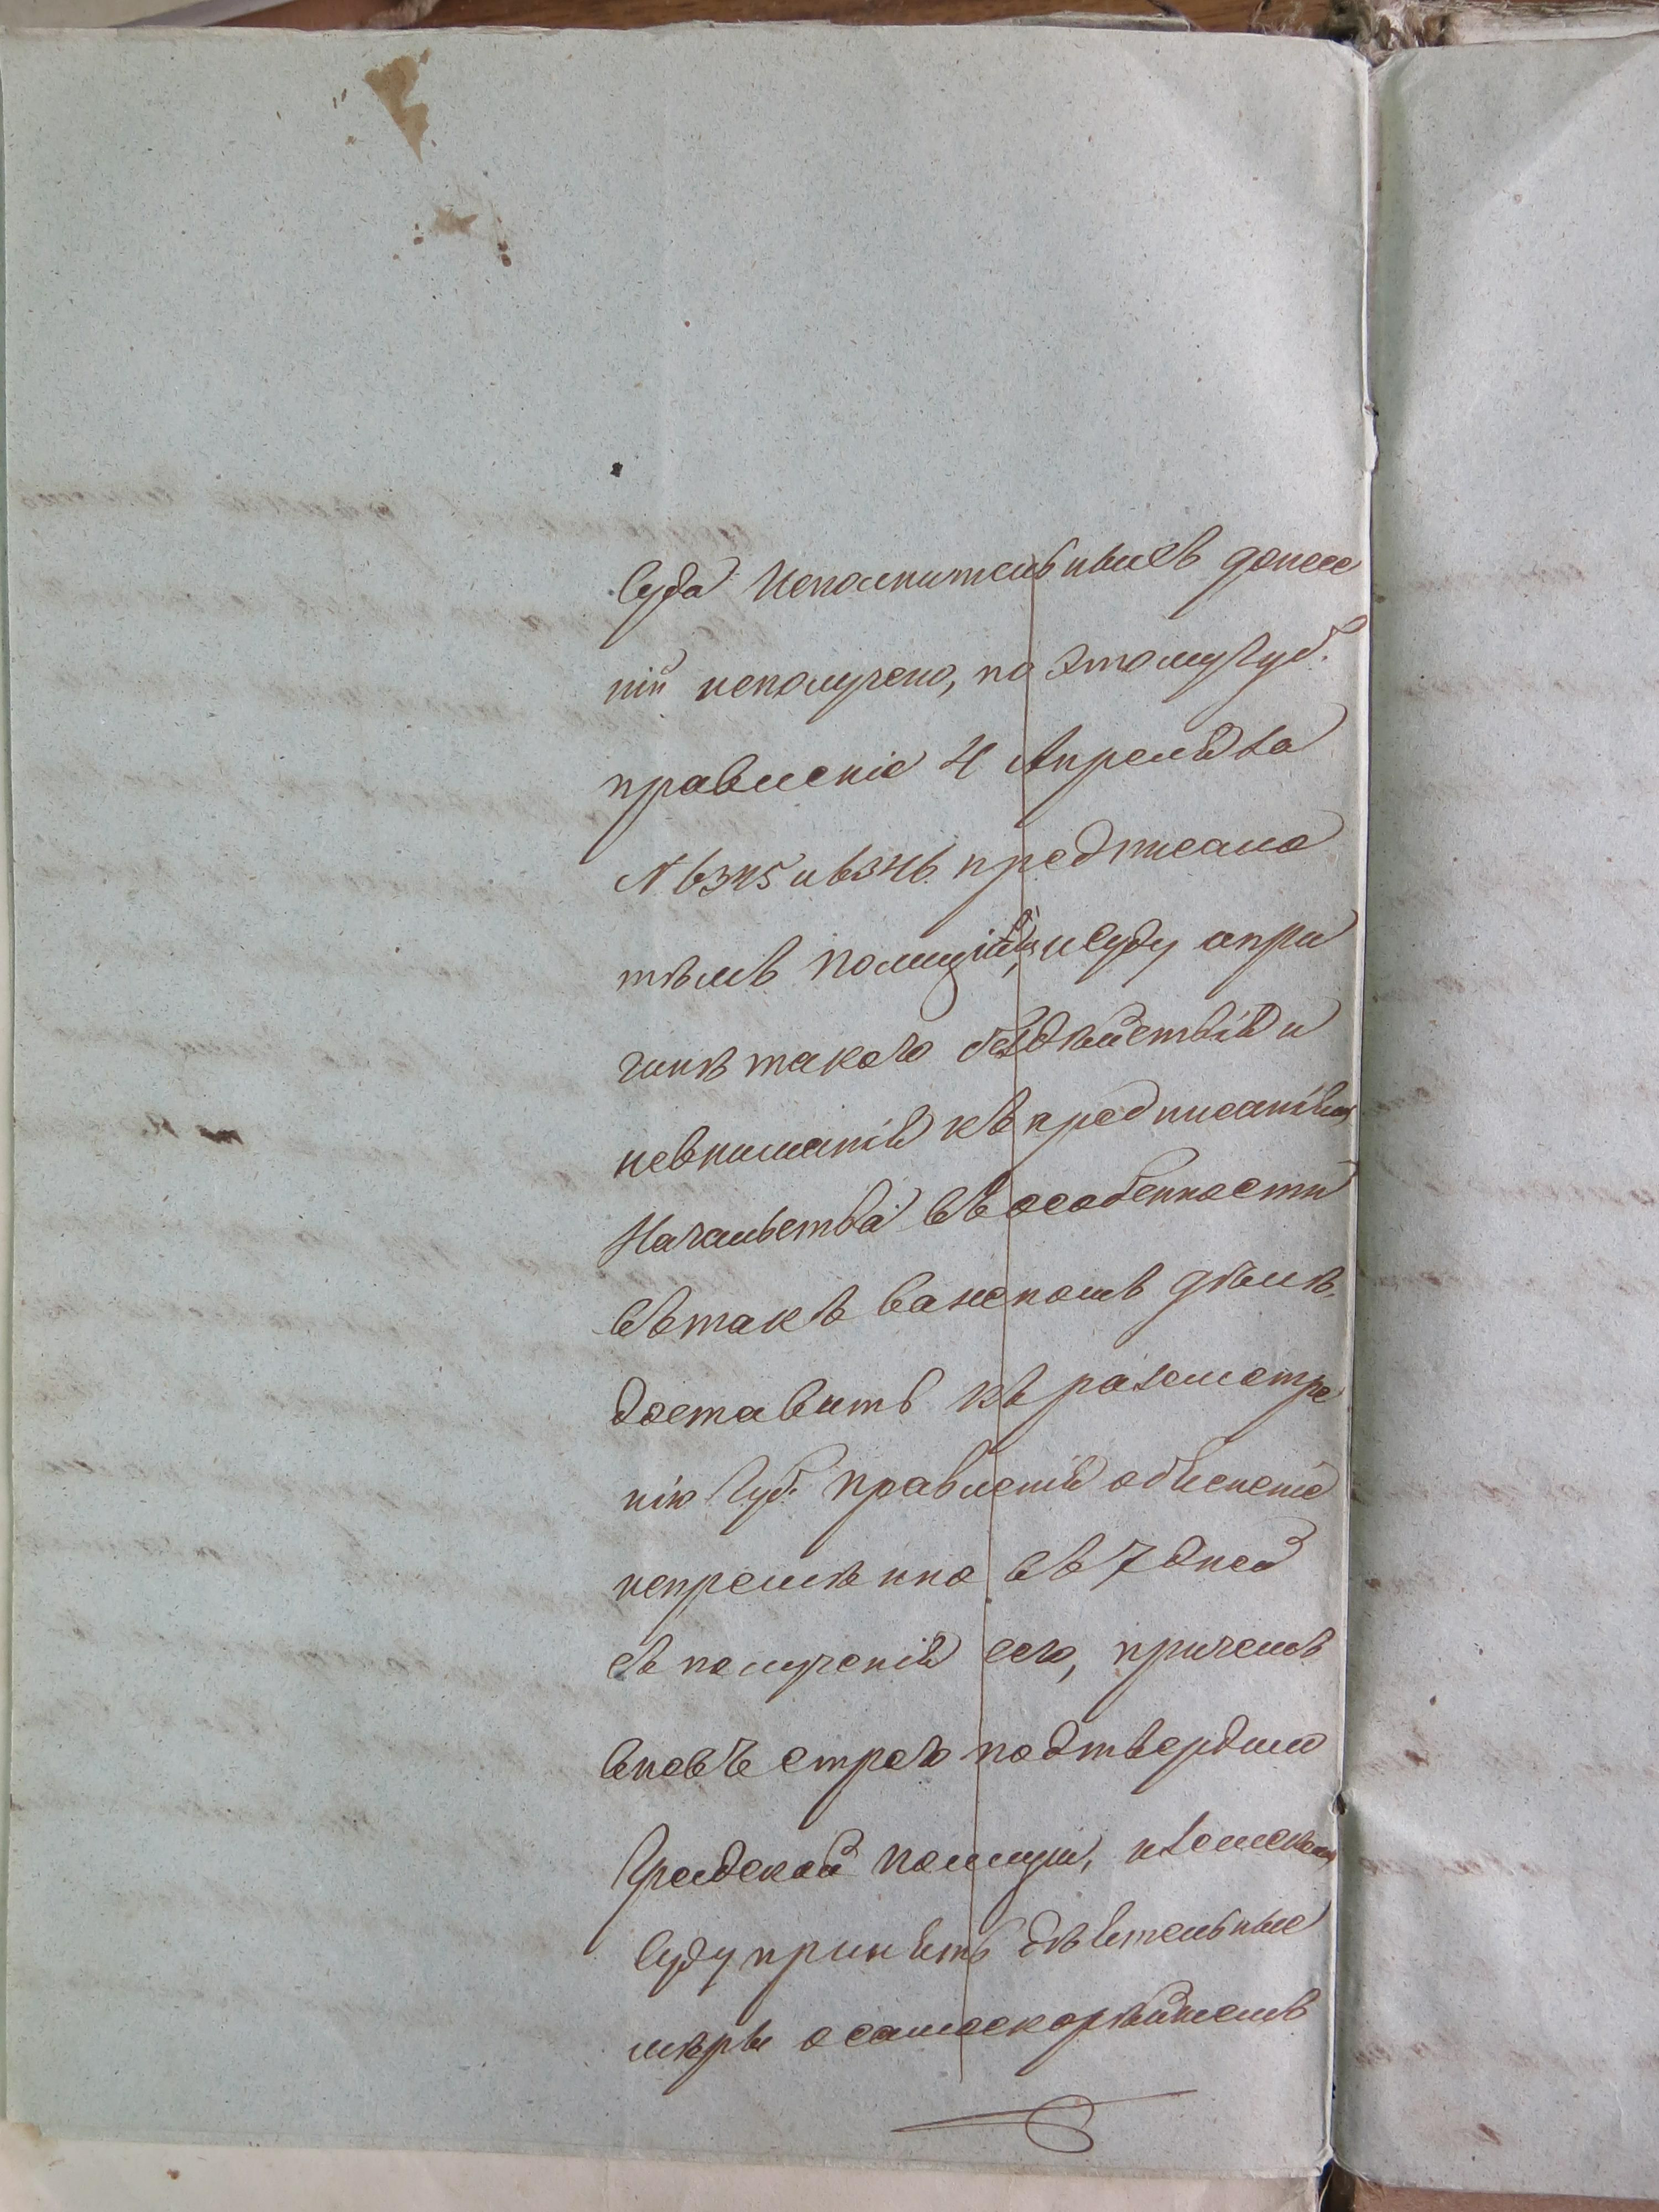 Суда Исполнительныхъ донесе
ній неполучено, по этому Губ.
правленіе 4 Апреля за
№ 6345 и 6346 предписало
тѣмъ полиціи и Суду о при
чинѣ такого бездѣйствія и
невниманія къ предписаніямъ
Начальства въ особенности
въ такъ важномъ дѣлѣ,
доставить къ разсмотре
нію Губ. Правленія объясненіе
непремѣнно въ 7 дней
съ полученія сего, причемъ
вновь строго подтвердило
Градской полиціи, и земскому
Суду принять дѣятельные
мѣры о самоскорѣйшемъ